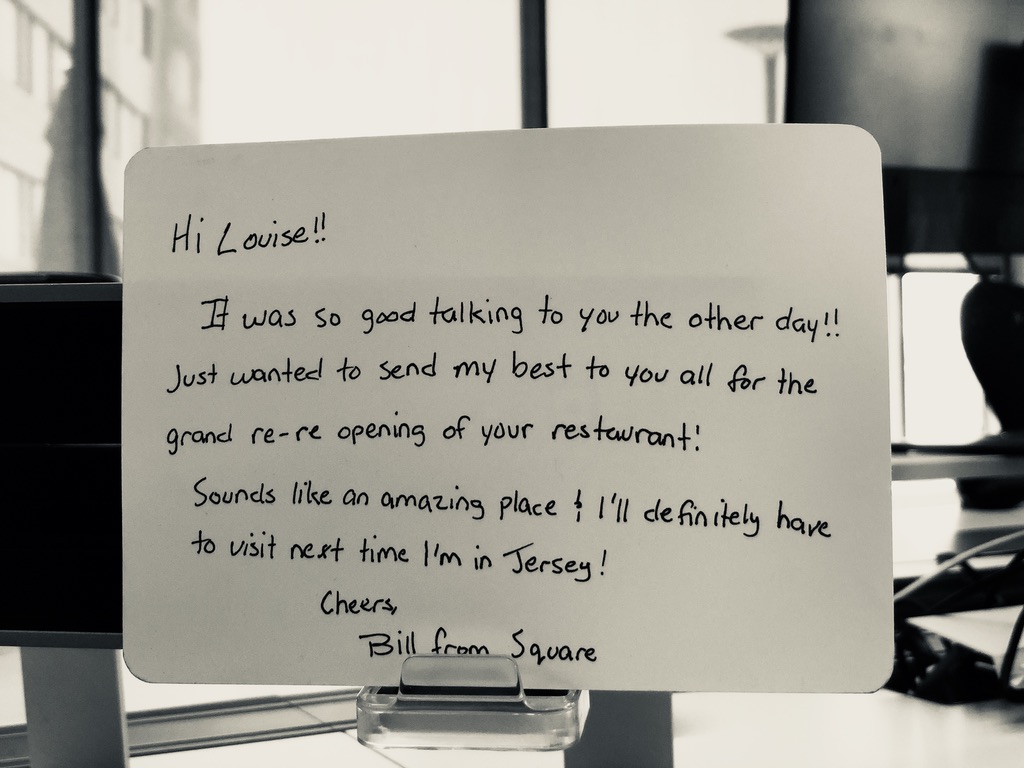 Hi Louise!!
It was so good talking to you the other day!!
Just wanted to send my best to you all for the
grand re-re opening of your restaurant!
Sounds like an amazing place & I'll definitely have
to visit next time I'm in Jersey!
Cheers,
Bill from Square